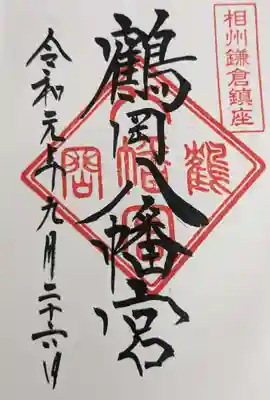 相州鎌倉鎮座
鶴岡八幡宮
令和元年九月二十六日